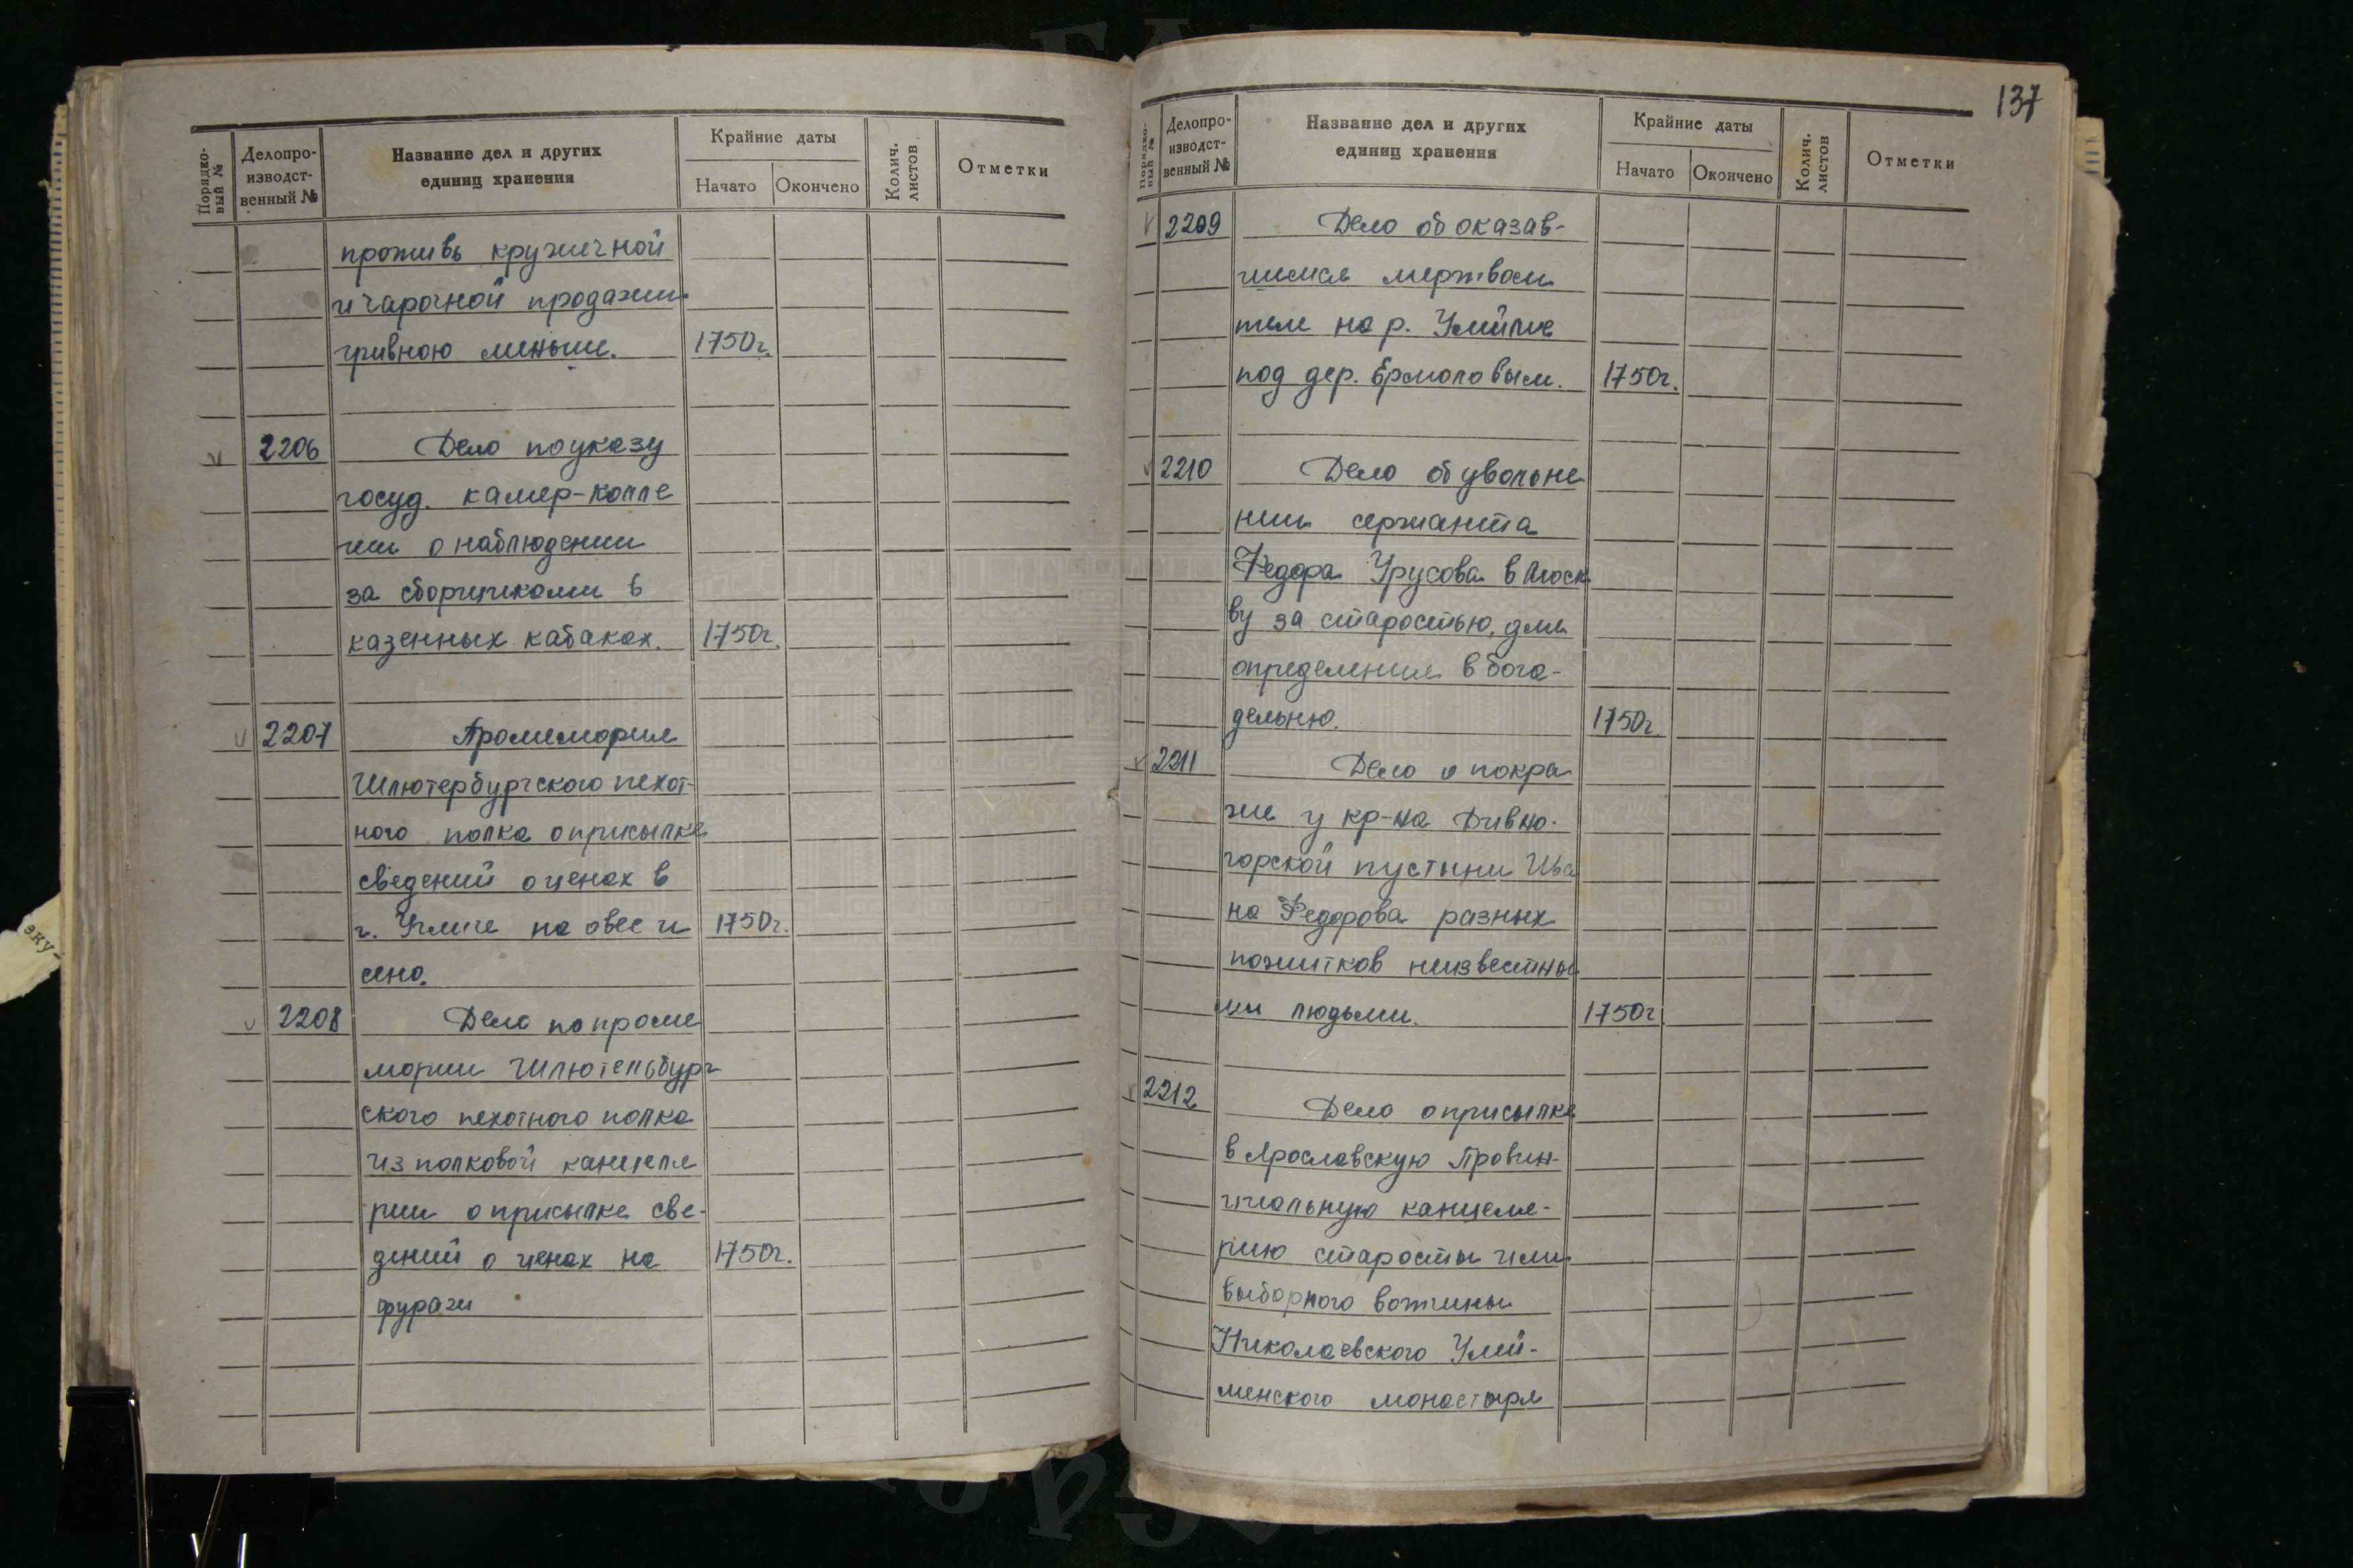 Порядко-
вый №
Делопро-
изводст-
венный №
Название дел и других
единиц хранения
Крайние даты
Начато
Окончено
Колич.
листов
Отметки
против кружечной
и чарочной продажи
гривною меньше. 1750г.
v 2206 Дело по указу
госуд. камер-колле
гии о наблюдении
за сборщиками в
казенных кабаках. 1750г.
v 2207 Промемория
Шлютербургского пехот-
ного полка о присылке
сведений о ценах в
г. Угличе на овес и 1750г.
сено.
v 2208 Дело по проме
мории Шлютельбург
ского пехотного полка
из полковой канцеля
рии о присылке све-
дений о ценах на 1750г.
фураж
эку-
137
Порядко-
вый №
Делопро-
изводст-
венный №
Название дел и других
единиц хранения
Крайние даты
Начато
Окончено
Колич.
листов
Отметки
v 2209 Дело об оказав-
шемся мертвом
теле на р. Улейме
под дер. Ермоловым. 1750г.
v 2210 Дело об увольне
нии сержанта
Федора Урусова в Моск
ву за старостью, для
определения в бога-
дельню. 1750г.
v 2211 Дело о покра
же у кр-на Дивно-
горской пустыни Ива
на Федорова разных
пожитков неизвестны
ми людьми. 1750г.
v 2212 Дело о присылке
в Ярославскую Провин-
циальную канцеля-
рию старосты или
выборного вотчины
Николаевского Улей-
менского монастыря